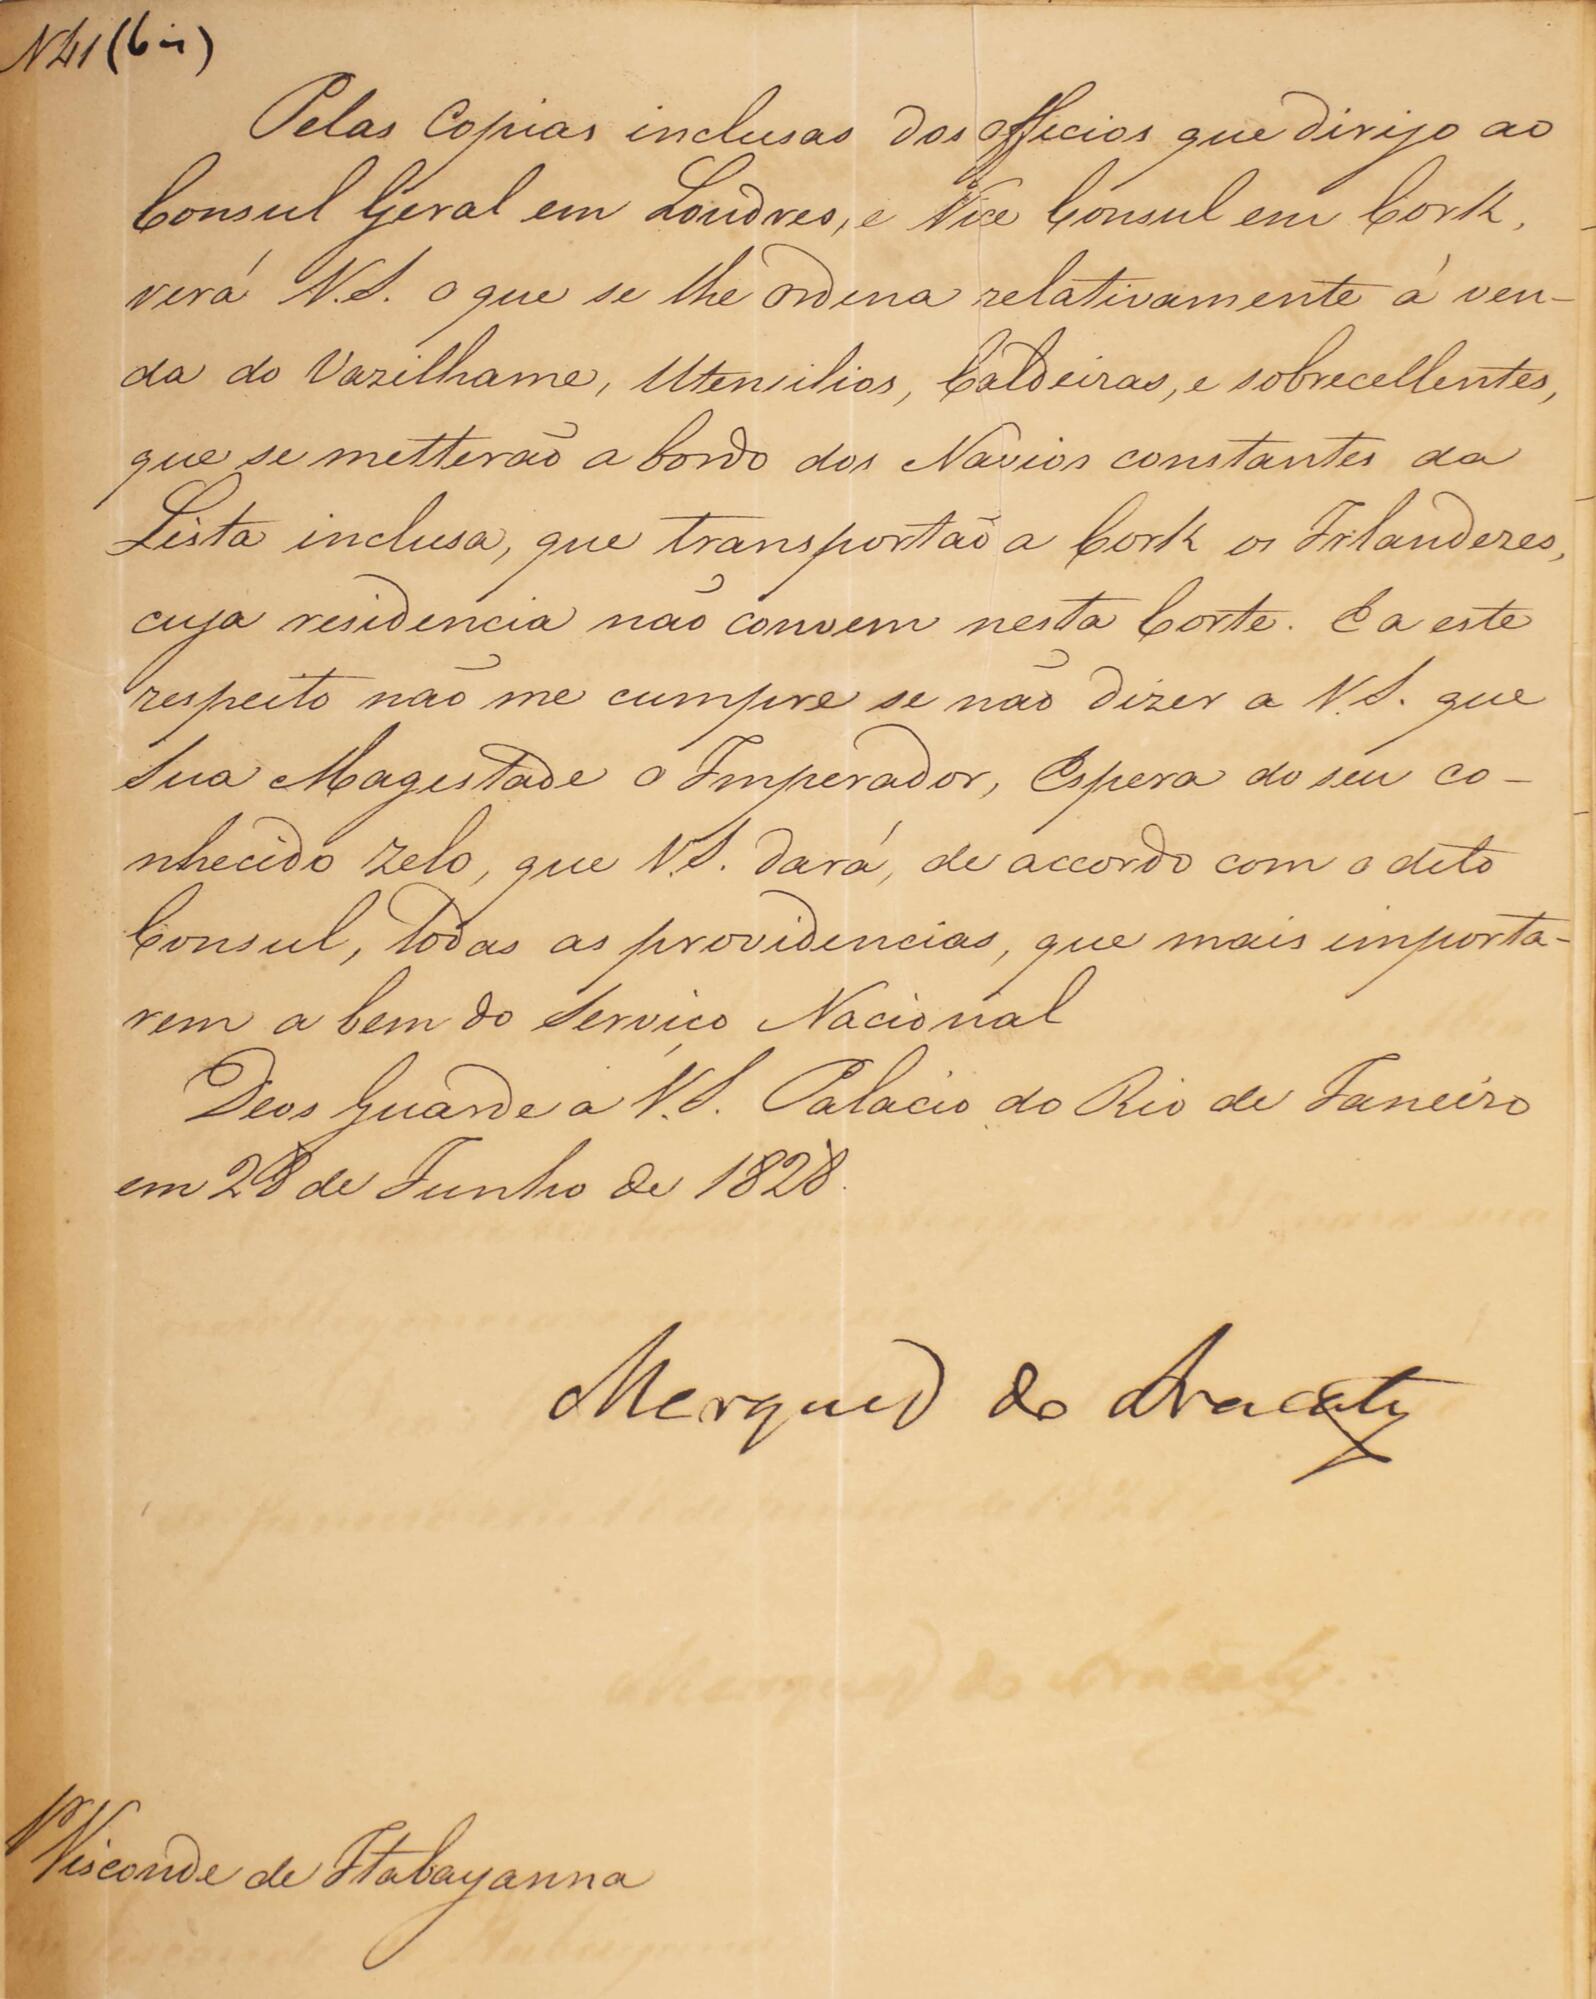 N 41 (bis)
Pelas Copias inclusas dos Officios que dirijo ao
Consul Geral em Londres, e Vice Consul em Cork,
verá V.S. o que se lhe ordena relativamente á ven-
da do Vazilhame, Utensilios, Caldeiras, e sobrecellentes,
que se metterão a bordo dos Navios constantes da
Lista inclusa, que transportão a Cork os Irlandezes,
cuja residencia não convem nesta Corte. E a este
respeito não me cumpre se não dizer a V.S. que
Sua Magestade o Imperador, Espera do seu co-
nhecido zelo, que V.S. dará, de accordo com o dito
Consul, todas as providencias, que mais importa-
rem a bem do Serviço Nacional
Deos Guarde a V.S. Palacio do Rio de Janeiro
em 28 de Junho de 1828.
Marquez do Aracaty
Visconde de Itabayanna